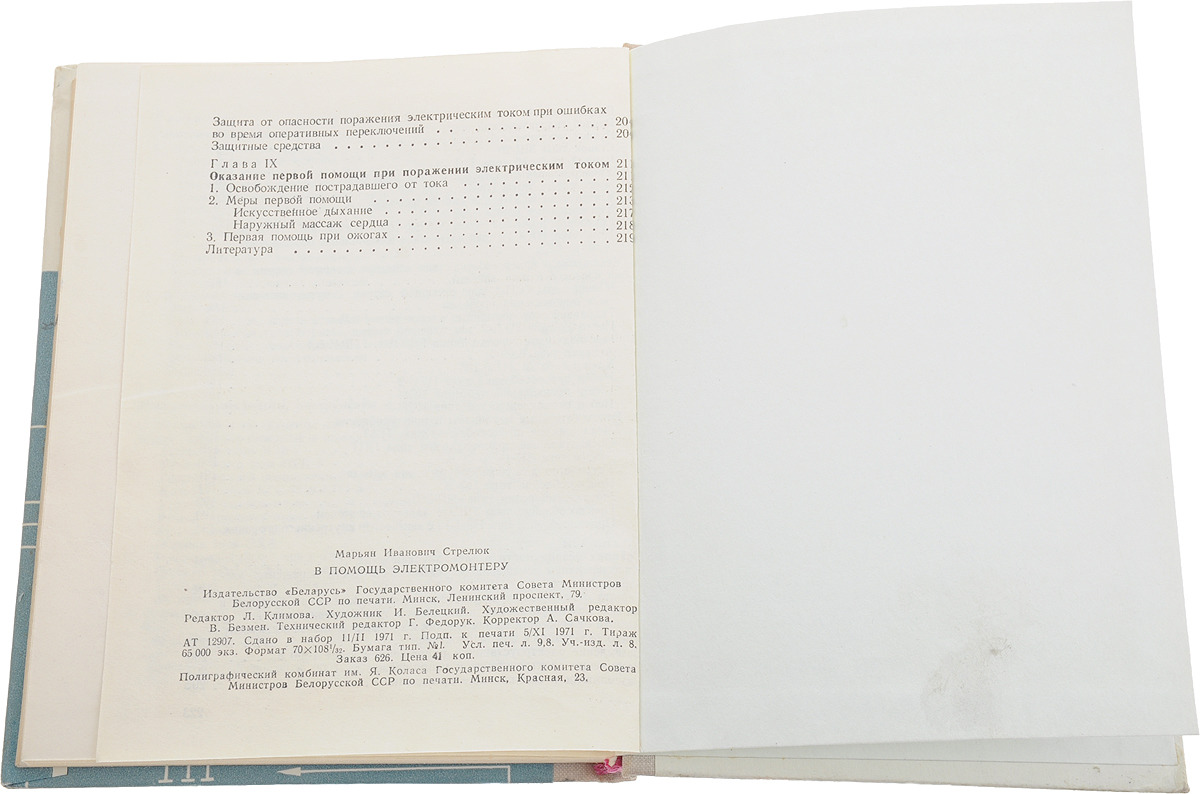 Защита от опасности поражения электрическим током при ошибках
во время оперативных переключений . . . . . . . . . . . . 20
Защитные средства . . . . . . . . . . . . . . . . . . . 20
Глава IX
Оказание первой помощи при поражении электрическим током 21
1. Освобождение пострадавшего от тока . . . . . . . . . . . 21
2. Меры первой помощи . . . . . . . . . . . . . . . . . 212
Искусственное дыхание . . . . . . . . . . . . . . . 213
Наружный массаж сердца . . . . . . . . . . . . . . 217
3. Первая помощь при ожогах . . . . . . . . . . . . . . . 218
Литература . . . . . . . . . . . . . . . . . . . . . 219
Марьян Иванович Стрелюк
В ПОМОЩЬ ЭЛЕКТРОМОНТЕРУ
Издательство «Беларусь» Государственного комитета Совета Министров
Белорусской ССР по печати. Минск, Ленинский проспект, 79.
Редактор Л. Климова. Художник И. Белецкий. Художественный редактор
В. Безмен. Технический редактор Г. Федорук. Корректор А. Сачкова.
АТ 12907. Сдано в набор 11/II 1971 г. Подп. к печати 5/XI 1971 г. Тираж
65 000 экз. Формат 70×108¹/₃₂. Бумага тип. №1. Усл. печ. л. 9,8. Уч.-изд. л. 8.
Заказ 626. Цена 41 коп.
Полиграфический комбинат им. Я. Коласа Государственного комитета Совета
Министров Белорусской ССР по печати. Минск, Красная, 23.